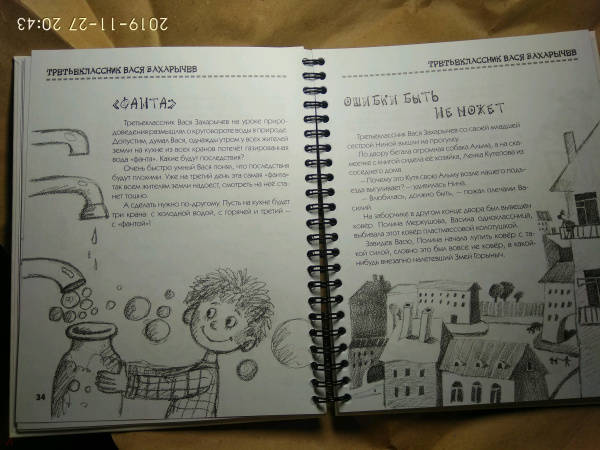 2019-11-27 20:43
ТРЕТЬЕКЛАССНИК ВАСЯ ЗАХАРЫЧЕВ
«ФАНТА»
Третьеклассник Вася Захарычев на уроке приро-
доведения размышлял о круговороте воды в природе.
Допустим, думал Вася, однажды утром у всех жителей
земли на кухне из всех кранов потечёт газированная
вода «фанта». Какие будут последствия?
Очень быстро умный Вася понял, что последствия
будут плохими. Уже на третий день эта самая «фанта»
так всем жителям земли надоест, смотреть на неё ста-
нет тошно.
А сделать нужно по-другому. Пусть на кухне будет
три крана: с холодной водой, с горячей и третий –
с «фантой»!
34
ТРЕТЬЕКЛАССНИК ВАСЯ ЗАХАРЫЧЕВ
ОШИБКИ БЫТЬ
НЕ МОЖЕТ
Третьеклассник Вася Захарычев со своей младшей
сестрой Ниной вышли на прогулку.
По двору бегала огромная собака Альма, а на ска-
меечке с книгой сидела её хозяйка, Ленка Кутепова из
соседнего дома.
– Почему это Кутя свою Альму возле нашего подъ-
езда выгуливает? – удивилась Нина.
– Влюбилась, должно быть, – пожал плечами Ва-
силий.
На заборчике в другом конце двора был вывешен
ковёр. Полина Меркушова, Васина одноклассница,
выбивала этот ковёр пластмассовой колотушкой.
Завидев Васю, Полина начала лупить ковёр с та-
кой силой, словно это был вовсе не ковёр, а какой-
нибудь внезапно налетевший Змей Горыныч.